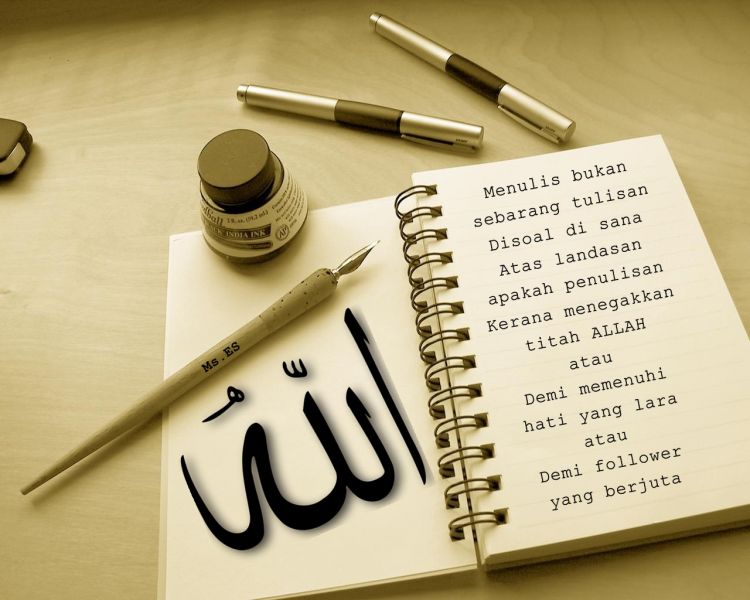 INDIA INK
AP
Ms.ES
اللّٰهُ
Menulis bukan
sebarang tulisan
Disoal di sana
Atas landasan
apakah penulisan
Kerana menegakkan
titah ALLAH
atau
Demi memenuhi
hati yang lara
atau
Demi follower
yang berjuta